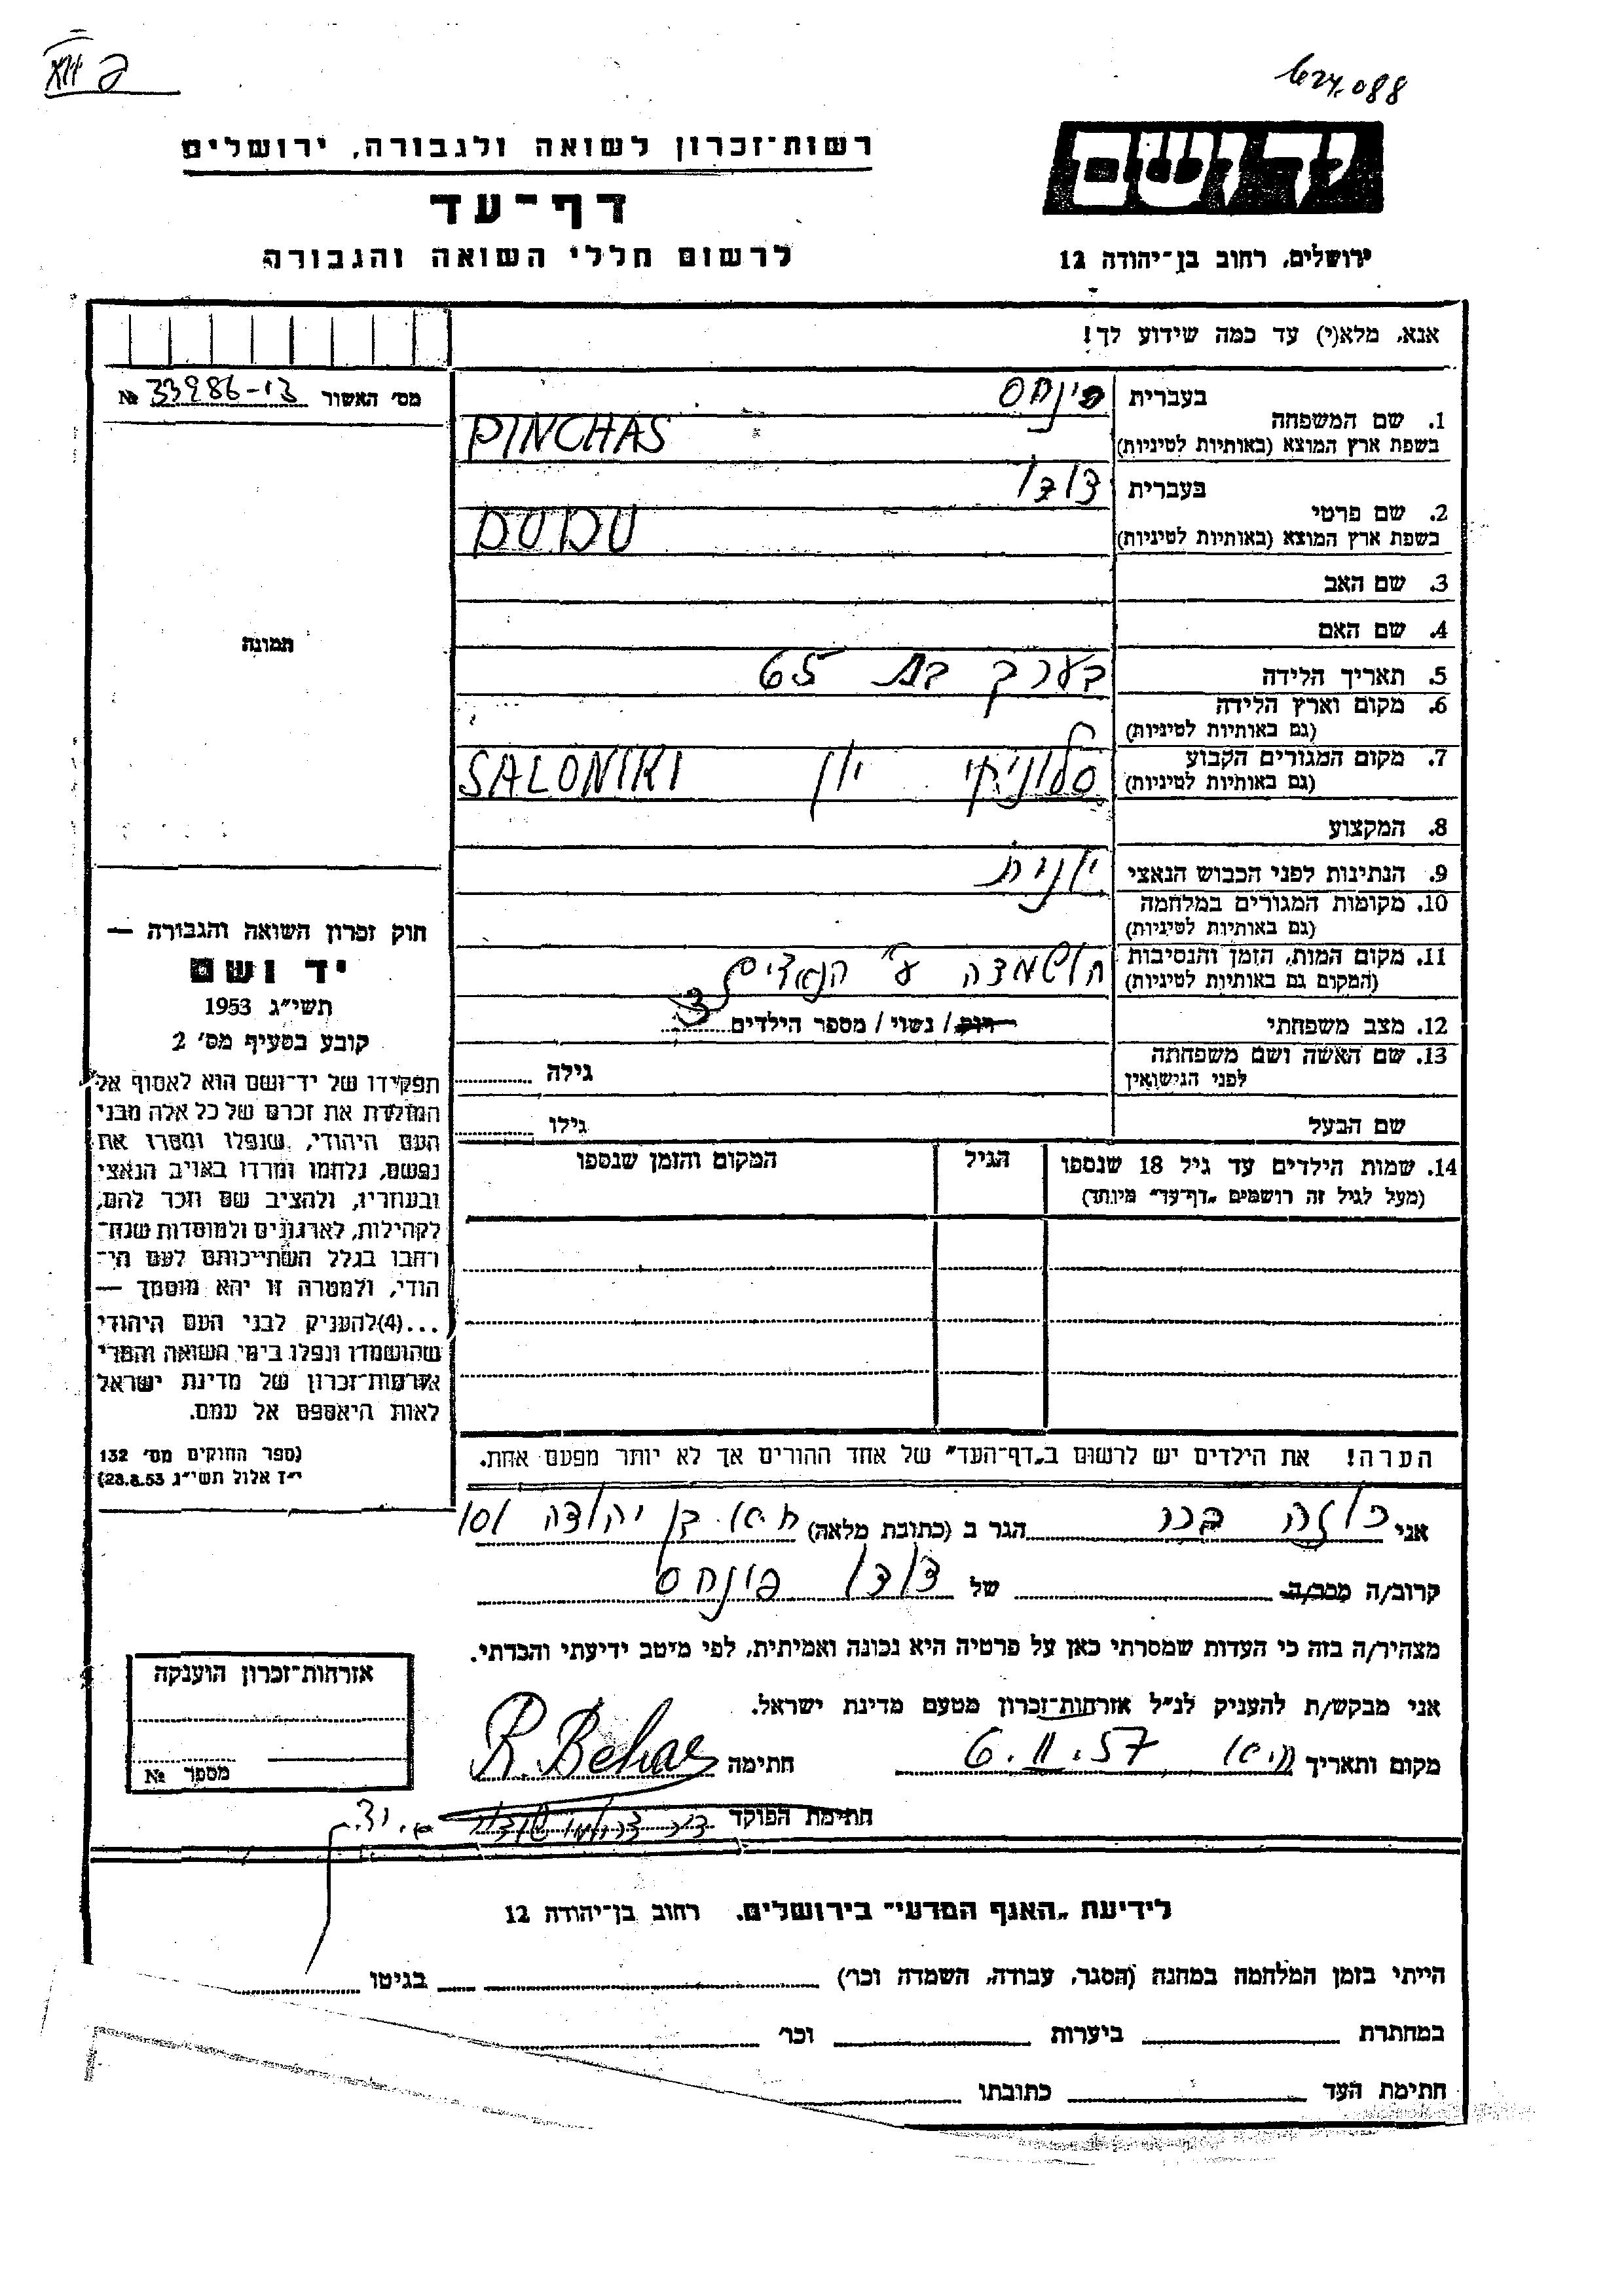 624.088
XII פ
יד ושם
רשות־זכרון לשואה ולגבורה, ירושלים
דף־עד
לרשום חללי השואה והגבורה
ירושלים, רחוב בן־יהודה 12
אנא, מלא(י) עד כמה שידוע לך!
מס׳ האשור № 33986-13
בעברית פינחס
1. שם המשפחה
בשפת ארץ המוצא (באותיות לטיניות) PINCHAS
בעברית דודו
2. שם פרטי
בשפת ארץ המוצא (באותיות לטיניות) DUDU
3. שם האב
4. שם האם
תמונה
5. תאריך הלידה בערך בת 65
6. מקום וארץ הלידה
(גם באותיות לטיניות)
7. מקום המגורים הקבוע סלוניקי יון SALONIKI
(גם באותיות לטיניות)
8. המקצוע
9. הנתינות לפני הכבוש הנאצי יונית
10. מקומות המגורים במלחמה
(גם באותיות לטיניות)
11. מקום המות, הזמן והנסיבות הושמדה ע״י הנאצים
(המקום גם באותיות לטיניות)
12. מצב משפחתי רווק / נשוי / מספר הילדים 3
13. שם האשה ושם משפחתה
לפני הנישואין גילה
שם הבעל גילו
14. שמות הילדים עד גיל 18 שנספו
(מעל לגיל זה רושמים „דף־עד״ מיוחד)
הגיל
המקום והזמן שנספו
חוק זכרון השואה והגבורה —
יד ושם
תשי״ג 1953
קובע בסעיף מס׳ 2
תפקידו של יד־ושם הוא לאסוף אל
המולדת את זכרם של כל אלה מבני
העם היהודי, שנפלו ומסרו את
נפשם, נלחמו ומרדו באויב הנאצי
ובעוזריו, ולהציב שם וזכר להם,
לקהילות, לארגונים ולמוסדות שנח־
רבו בגלל השתייכותם לעם הי־
הודי, ולמטרה זו יהא מוסמך —
...(4)להעניק לבני העם היהודי
שהושמדו ונפלו בימי השואה והמרי
אזרחות־זכרון של מדינת ישראל
לאות היאספם אל עמם.
(ספר החוקים מס׳ 132
י״ז אלול תשי״ג 28.8.53)
הערה! את הילדים יש לרשום ב„דף־העד״ של אחד ההורים אך לא יותר מפעם אחת.
אני רוזה בכר הגר ב (כתובת מלאה) בן יהודה 101
קרוב/ה מכר/ה של דודו פינחס
מצהיר/ה בזה כי העדות שמסרתי כאן על פרטיה היא נכונה ואמיתית, לפי מיטב ידיעתי והכרתי.
אני מבקש/ת להעניק לנ״ל אזרחות־זכרון מטעם מדינת ישראל.
מקום ותאריך 6.II.57 חתימה R. Behar
חתימת הפוקד
אזרחות־זכרון הוענקה
מספר №
לידיעת „האגף המדעי״ בירושלים, רחוב בן־יהודה 12
הייתי בזמן המלחמה במחנה (הסגר, עבודה, השמדה וכר׳) בגיטו
במחתרת ביערות וכר׳
חתימת העד כתובתו